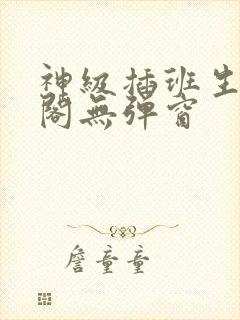 神級插班生
閣無彈窗
詹童童